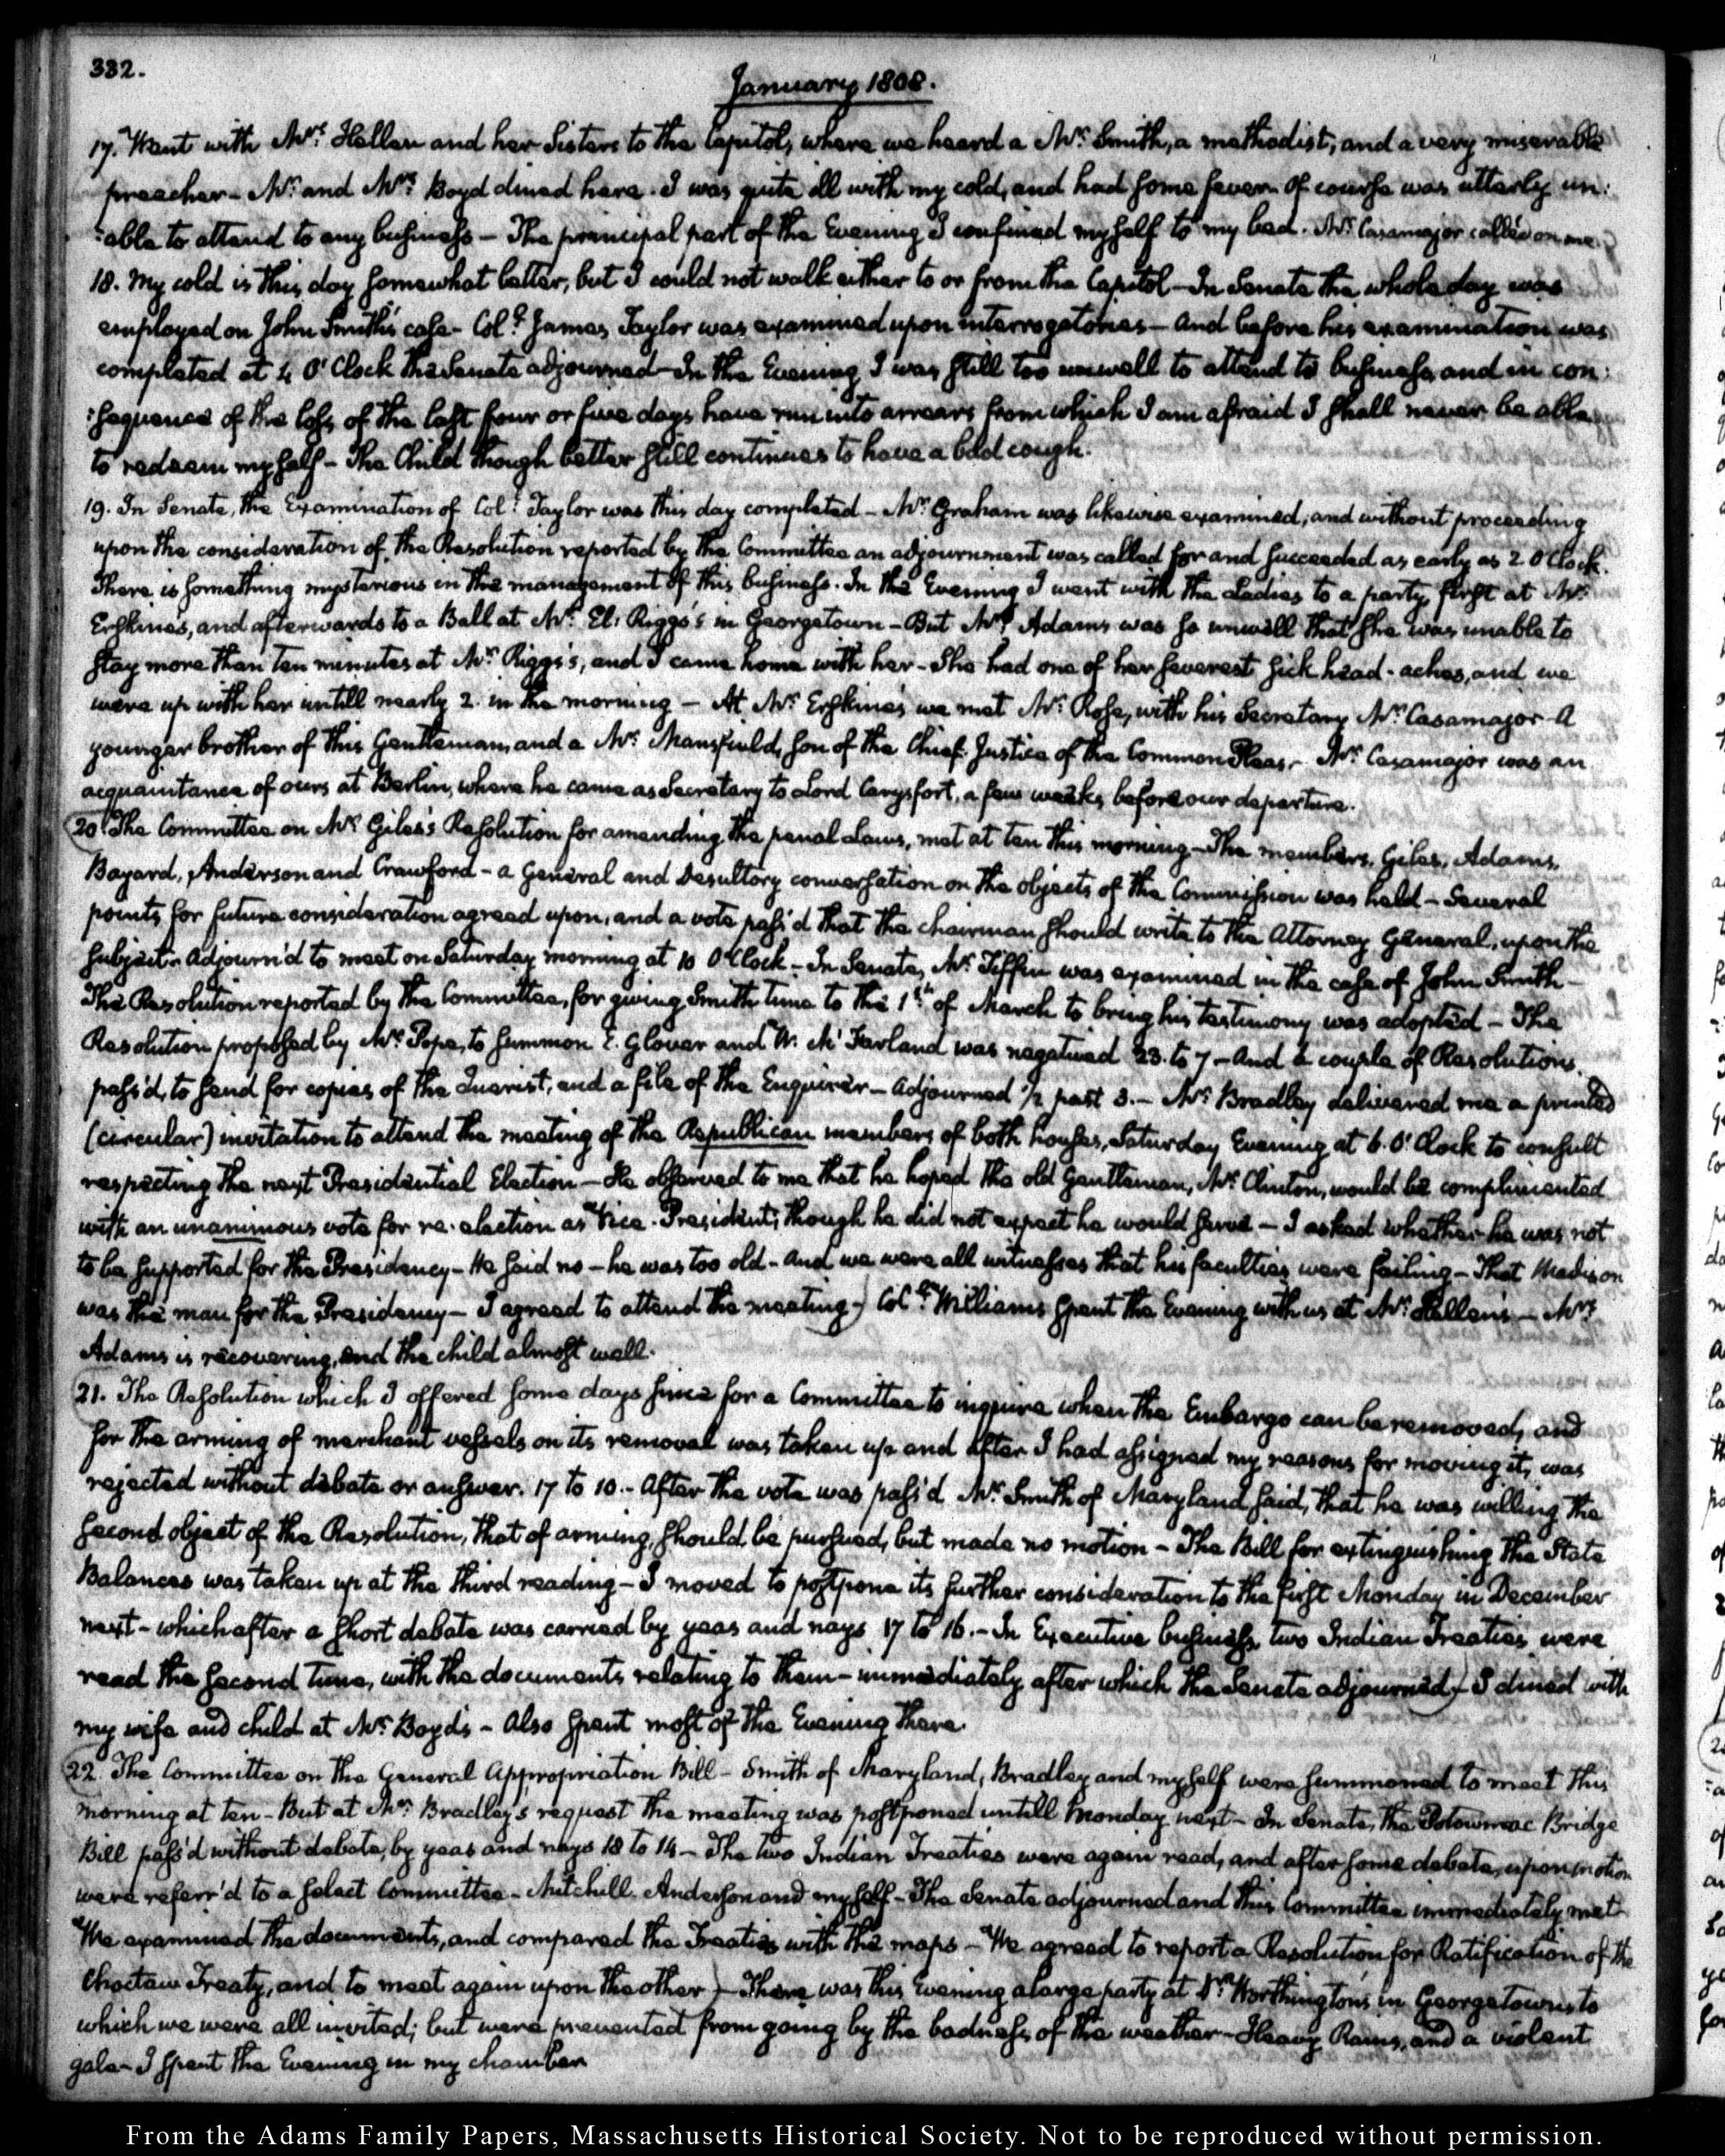 332.
January 1808.
17. Went with Mrs. Hellen and her Sisters to the Capitol, where we heard a Mr. Smith, a methodist, and a very miserable
preacher - Mr. and Mrs. Boyd dined here. I was quite ill with my cold, and had some fever. Of course was utterly un:
:able to attend to any business - The principal part of the Evening I confined myself to my bed. Mr. Casamajor called on me.
18. My cold is this day somewhat better, but I could not walk either to or from the Capitol - In Senate the whole day was
employed on John Smith's case - Coll. James Taylor was examined upon interrogatories - And before his examination was
completed at 4 O'Clock the Senate adjourned - In the Evening I was still too unwell to attend to business, and in con:
:sequence of the loss of the last four or five days have run into arrears from which I am afraid I shall never be able
to redeem myself - The Child though better still continues to have a bad cough.
19. In Senate, the Examination of Coll. Taylor was this day completed - Mr. Graham was likewise examined, and without proceeding
upon the consideration of the Resolution reported by the Committee an adjournment was called for and succeeded as early as 2 O'Clock.
There is something mysterious in the management of this business. In the Evening I went with the Ladies to a party, first at Mr.
Erskine's, and afterwards to a Ball at Mr. El: Riggs's in Georgetown - But Mrs. Adams was so unwell that she was unable to
stay more than ten minutes at Mr. Riggs's, and I came home with her - She had one of her severest sick head-aches, and we
were up with her untill nearly 2. in the morning - At Mr. Erskine's we met Mr. Rose, with his Secretary Mr. Casamajor - A
younger brother of this Gentleman, and a Mr. Mansfield, son of the Chief Justice of the Common Pleas - Mr. Casamajor was an
acquaintance of ours at Berlin, where he came as Secretary to Lord Carysfort, a few weeks before our departure.
20. The Committee on Mr. Giles's Resolution for amending the penal Laws, met at ten this morning - The members, Giles, Adams,
Bayard, Anderson and Crawford - a General and Desultory conversation on the objects of the Commission was held - Several
points for future consideration agreed upon, and a vote pass'd that the chairman should write to the Attorney General, upon the
subject - Adjourn'd to meet on Saturday morning at 10 O'Clock - In Senate, Mr. Tiffin was examined in the case of John Smith -
The Resolution reported by the Committee, for giving Smith time to the 1st. of March to bring his testimony was adopted - The
Resolution proposed by Mr. Pope, to summon E. Glover and W. Mc Farland was negatived 23. to 7 - And a couple of Resolutions
pass'd, to send for copies of the Querist, and a file of the Enquirer - Adjourned 1/2 past 3. - Mr. Bradley delivered me a printed
(circular) invitation to attend the meeting of the Republican members of both houses, Saturday Evening at 6. O'Clock to consult
respecting the next Presidential Election - He observed to me that he hoped the old Gentleman, Mr. Clinton, would be complimented
with an unanimous vote for re-election as Vice-President; though he did not expect he would serve - I asked whether he was not
to be supported for the Presidency - He said no - he was too old - And we were all witnesses that his faculties were failing - That Madison
was the man for the Presidency - I agreed to attend the meeting.) Coll. Williams spent the Evening with us at Mr. Hellen's - Mrs.
Adams is recovering, and the child almost well.
21. The Resolution which I offered some days since for a Committee to inquire when the Embargo can be removed, and
for the arming of merchant vessels on its removal was taken up and after I had assigned my reasons for moving it, was
rejected without debate or answer. 17 to 10. - After the vote was pass'd Mr. Smith of Maryland said, that he was willing the
second object of the Resolution, that of arming, should be pursued, but made no motion - The Bill for extinguishing the State
Balances was taken up at the third reading - I moved to postpone its further consideration to the first Monday in December
next - which after a short debate was carried by yeas and nays 17 to 16. - In Executive business, two Indian Treaties were
read the second time, with the documents relating to them - immediately after which the Senate adjourned.) I dined with
my wife and child at Mr. Boyd's - Also spent most of the Evening there.
22. The Committee on the General Appropriation Bill - Smith of Maryland, Bradley and myself were summoned to meet this
morning at ten - But at Mr. Bradley's request the meeting was postponed untill Monday next - In Senate, the Potowmac Bridge
Bill pass'd without debate, by yeas and nays 18 to 14 - The two Indian Treaties were again read, and after some debate, upon motion
were referr'd to a select Committee - Mitchill, Anderson and myself - The Senate adjourned and this Committee immediately met
We examined the documents, and compared the Treaties with the maps - We agreed to report a Resolution for Ratification of the
Choctaw Treaty, and to meet again upon the other.) - There was this Evening a large party at Dr. Worthington's in Georgetown to
which we were all invited; but were prevented from going by the badness of the weather - Heavy Rains, and a violent
gale - I spent the Evening in my chamber
From the Adams Family Papers, Massachusetts Historical Society. Not to be reproduced without permission.